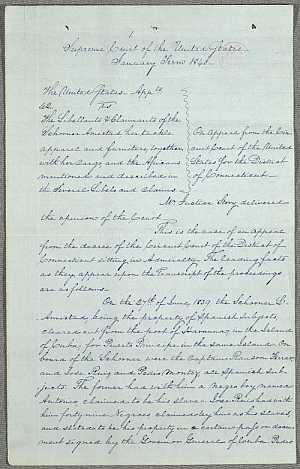 Supreme Court of the United States
January Term 1841
The United States. Appts
vs
The Libellants & Claimants of the
Schooner Amistad, her tackle
apparel and furniture, together
with her cargo and the Africans
mentioned and described in
the several libels and claims
On Appeal from the Cir
cuit Court of the United
States for the District
of Connecticut.
Mr Justice Story delivered
the opinion of the Court
This is the case of an appeal
from the decree of the Circuit Court of the District of
Connecticut sitting in Admiralty. The leading facts
as they appear upon the Transcript of the proceedings
are as follows.
On the 27th of June 1839 the Schooner L'
Amistad, being the property of Spanish Subjects,
cleared out from the port of Havanna, in the Island
of Cuba, for Puerto Principe in the same Island. On
board of the Schooner were the Captain Ransom Ferrer,
and Jose Ruiz and Pedro Montez, all Spanish Sub
jects. The former had with him a negro boy, named
Antonio, claimed to be his slave. Jose Ruiz had with
him forty nine Negroes claimed by him as his slaves,
and stated to be his property, in a certain pass or docu
ment signed by the Governor General of Cuba. Pedro